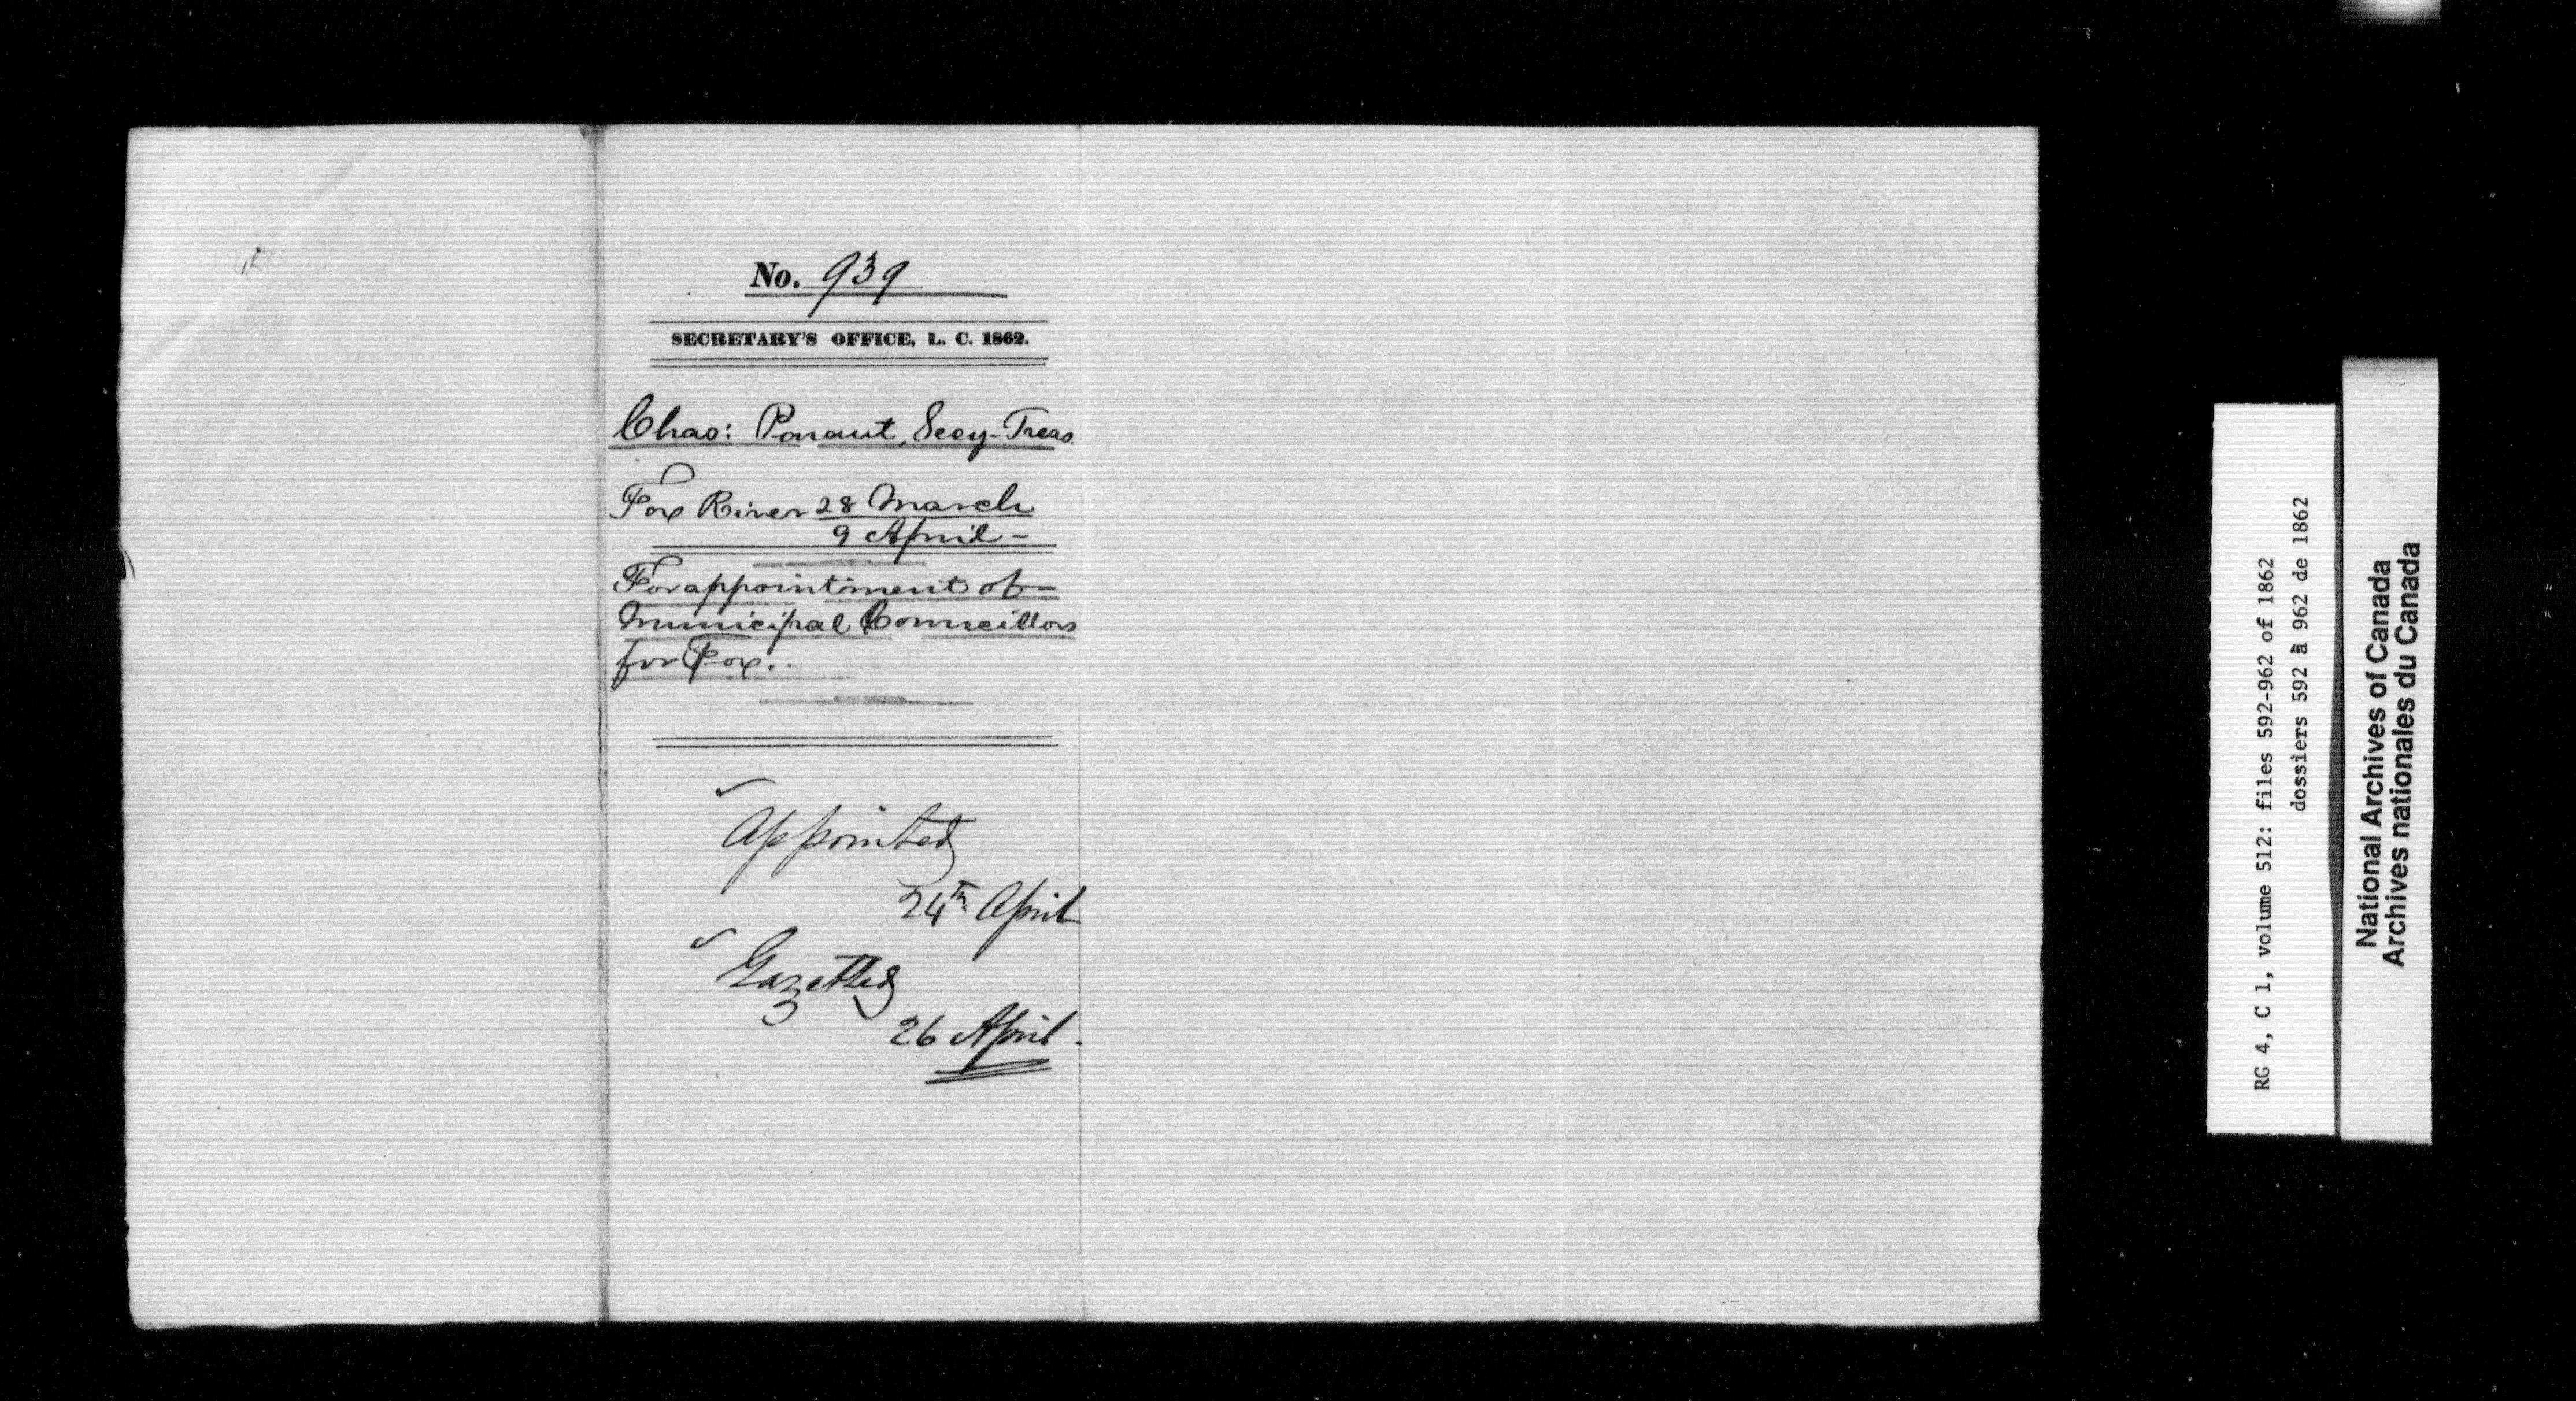 No. 939
SECRETARY'S OFFICE, L. C. 1862.
Chas: Paraut, Secy-Treas.
Fox River 28 March
9 April -
For appointment of
Municipal Councillors
for Fox..
Appointed
24th April
Gazetted
26 April.
RG 4, C 1, volume 512: files 592-962 of 1862
dossiers 592 à 962 de 1862
National Archives of Canada
Archives nationales du Canada